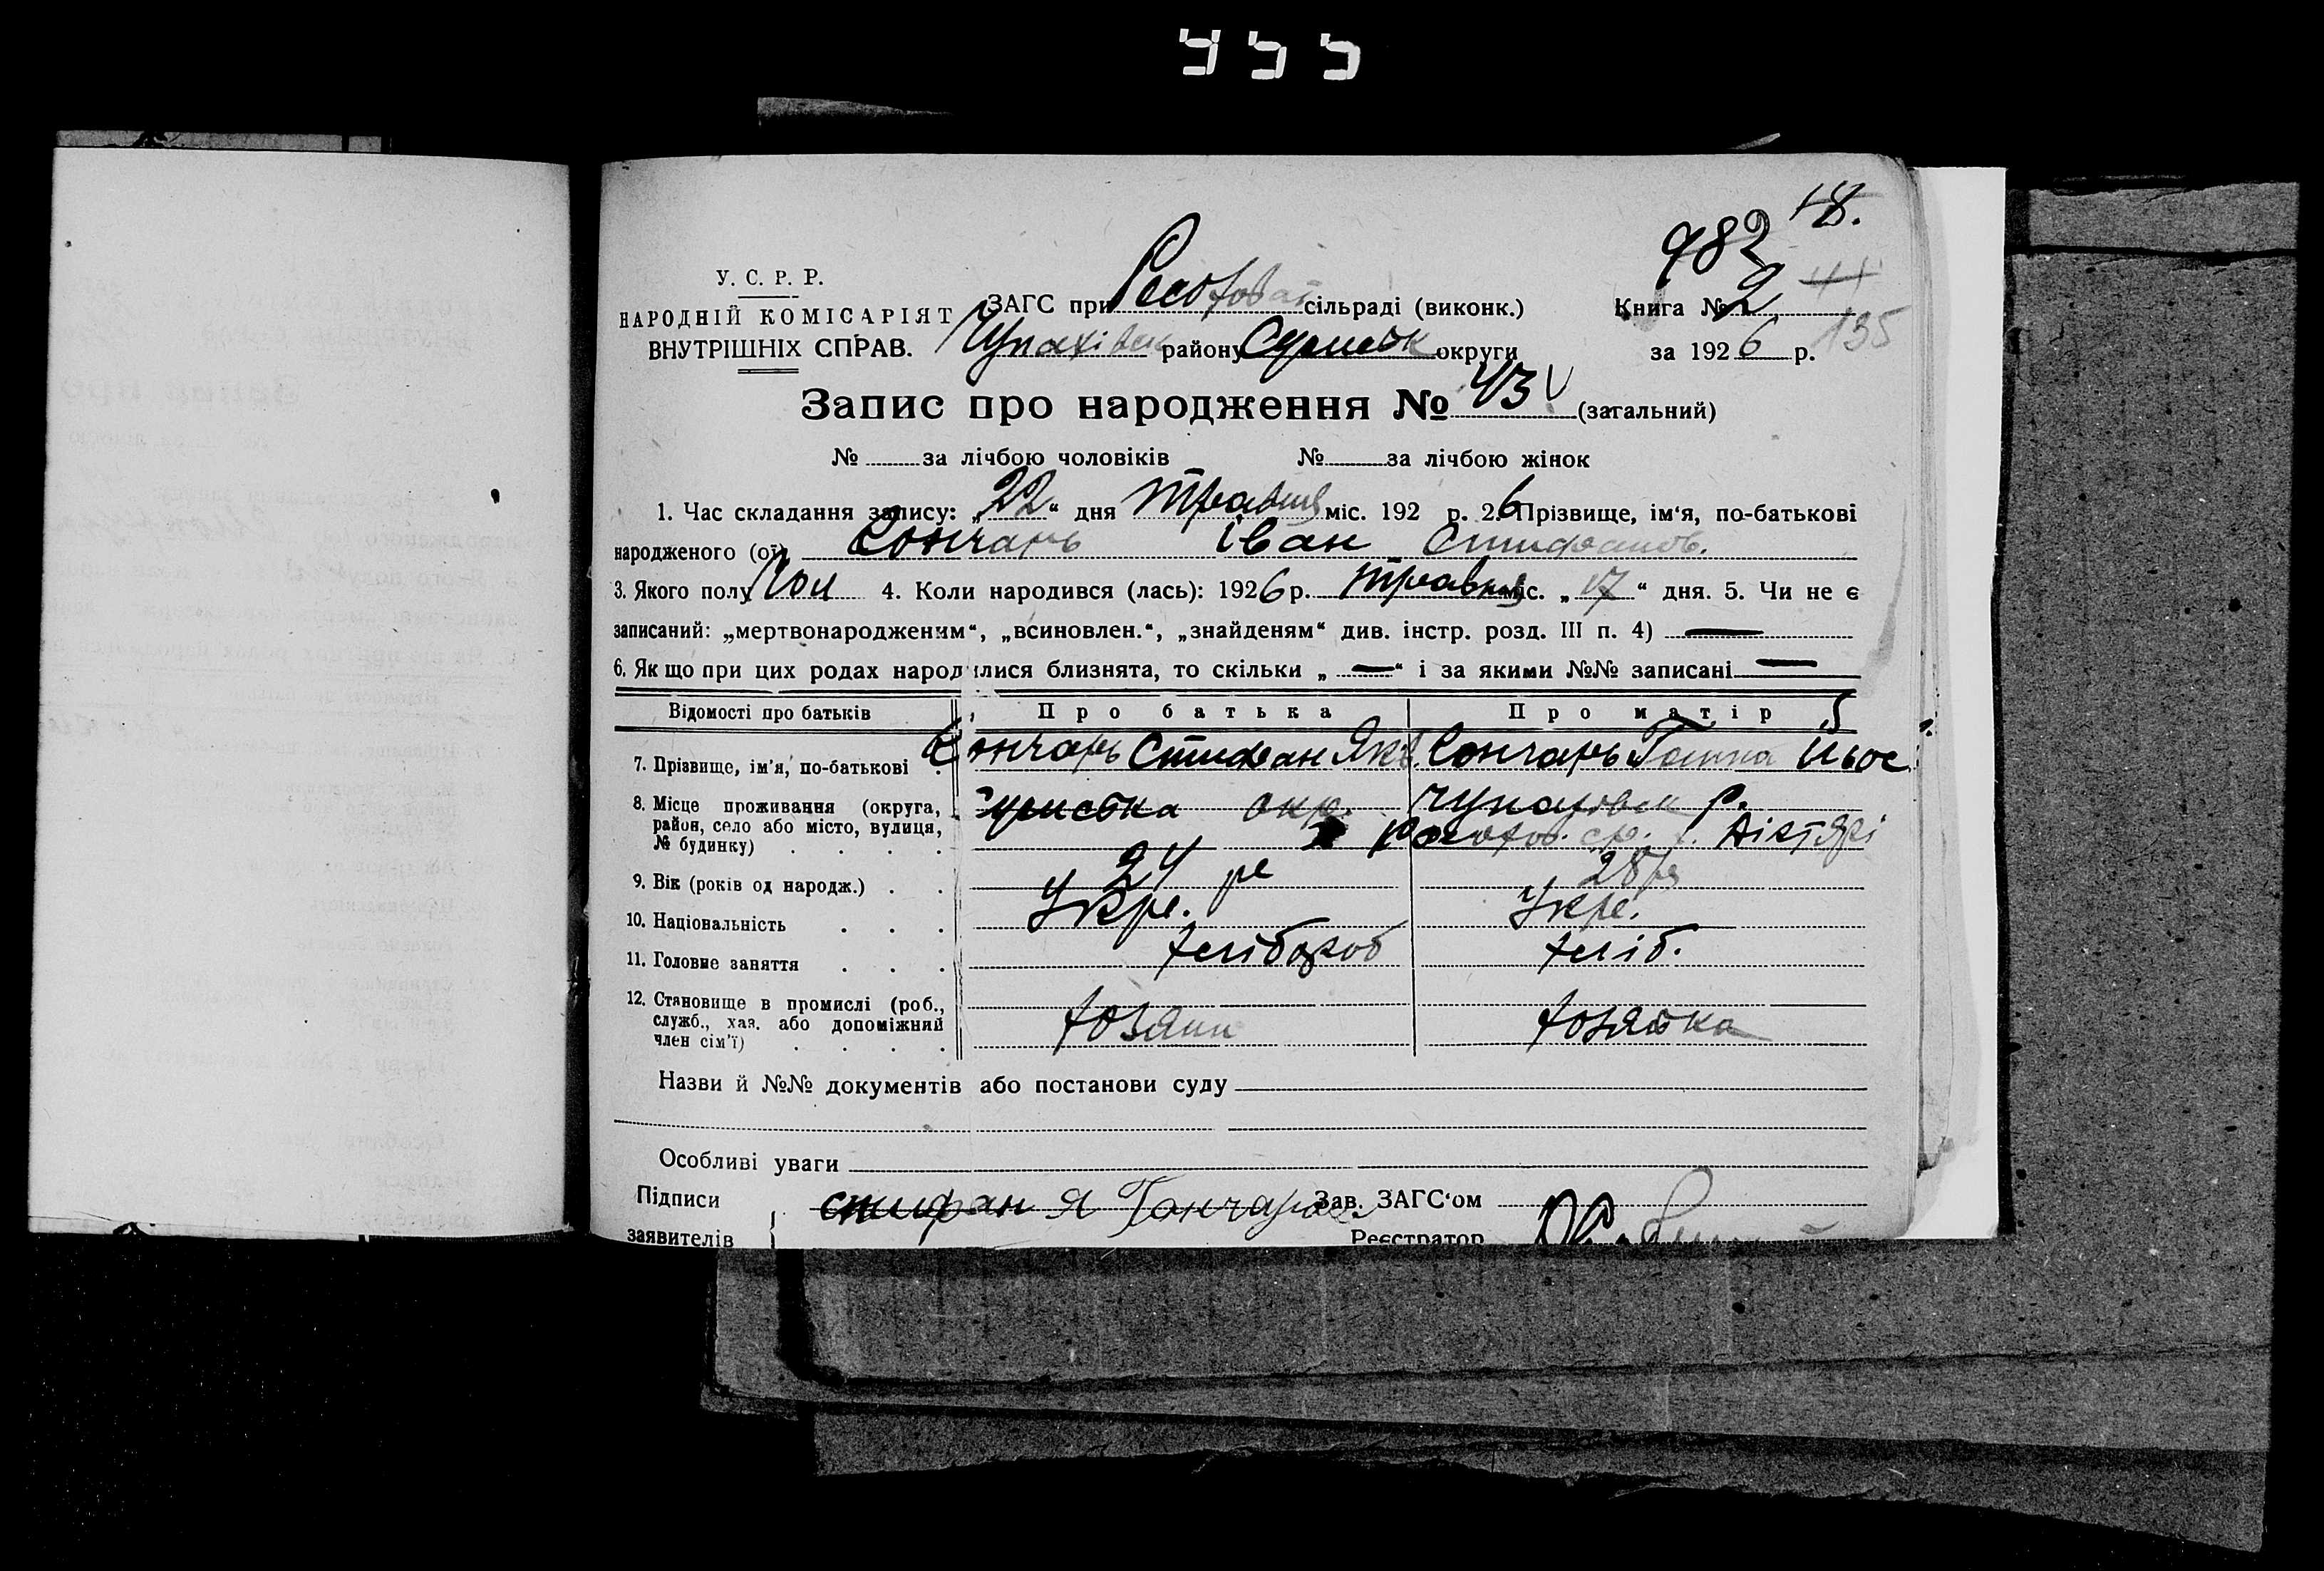 455
18.
982
У. С. Р. Р.
НАРОДНІЙ КОМІСАРІЯТ
ВНУТРІШНІХ СПРАВ.
ЗАГС при сільраді (виконк.)
району Сумськ округи
Книга № 2
за 1926 р. 135
Запис про народження № 43 (загальний)
№ за лічбою чоловіків № за лічбою жінок
1. Час складання запису: „22“ дня Травня міс. 192 р. 6 2. Прізвище, ім‘я, по-батькові
народженого (ої) Гончарь Іван Стифанов.
3. Якого полу Чол 4. Коли народився (лась): 1926 р. травня міс. „17“ дня. 5. Чи не є
записаний: „мертвонародженим“, „всиновлен.“, „знайденям“ див. інстр. розд. III п. 4) —
6. Як що при цих родах народилися близнята, то скільки „—“ і за якими №№ записані —
Відомості про батьків Про батька Про матір 5
7. Прізвище, ім'я, по-батькові Гончарь Стифан Яків. Гончарь Ганна Йос
8. Місце проживання (округа, район, село або місто, вулиця, № будинку) Сумська окр. р.
9. Вік (років од народж.) 24 р 28 р
10. Національність Укр. Укр.
11. Головне заняття хліб.
12. Становище в промислі (роб., служб., хаз. або допоміжний член сім'ї) хозяин хозяйка
Назви й №№ документів або постанови суду
Особливі уваги
Підписи стифан Я Гончарь Зав. ЗАГС‘ом
заявителів Реєстратор